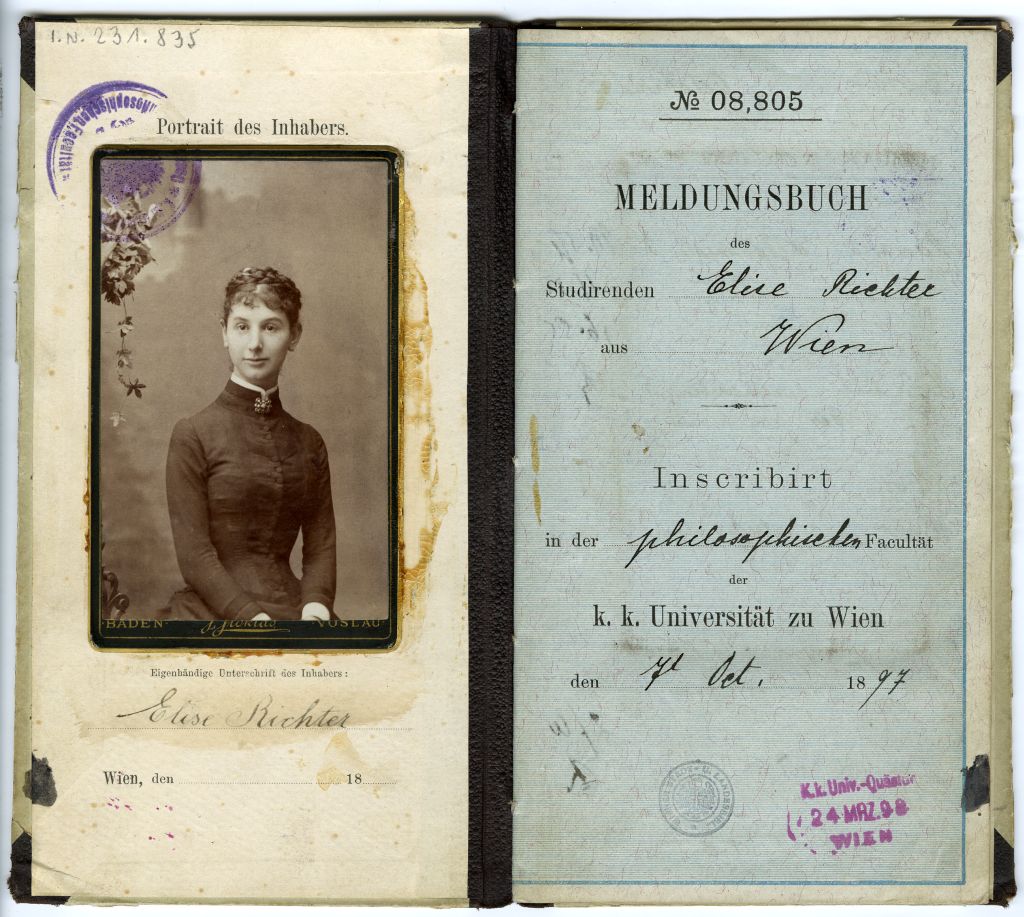 I.N. 231.835
Portrait des Inhabers.
BADEN VÖSLAU
Eigenhändige Unterschrift des Inhabers:
Elise Richter
Wien, den 18
№ 08,805
MELDUNGSBUCH
des
Studirenden Elise Richter
aus Wien
Inscribirt
in der philosophischen Facultät
der
k. k. Universität zu Wien
den 7t Oct. 1897
K.k. Univ.-Quästur
24 MRZ. 98
WIEN